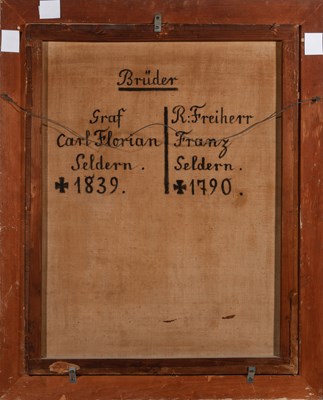 Brüder
Graf
Carl Florian
Seldern.
✠ 1839.
R: Freiherr
Franz
Seldern.
✠ 1790.